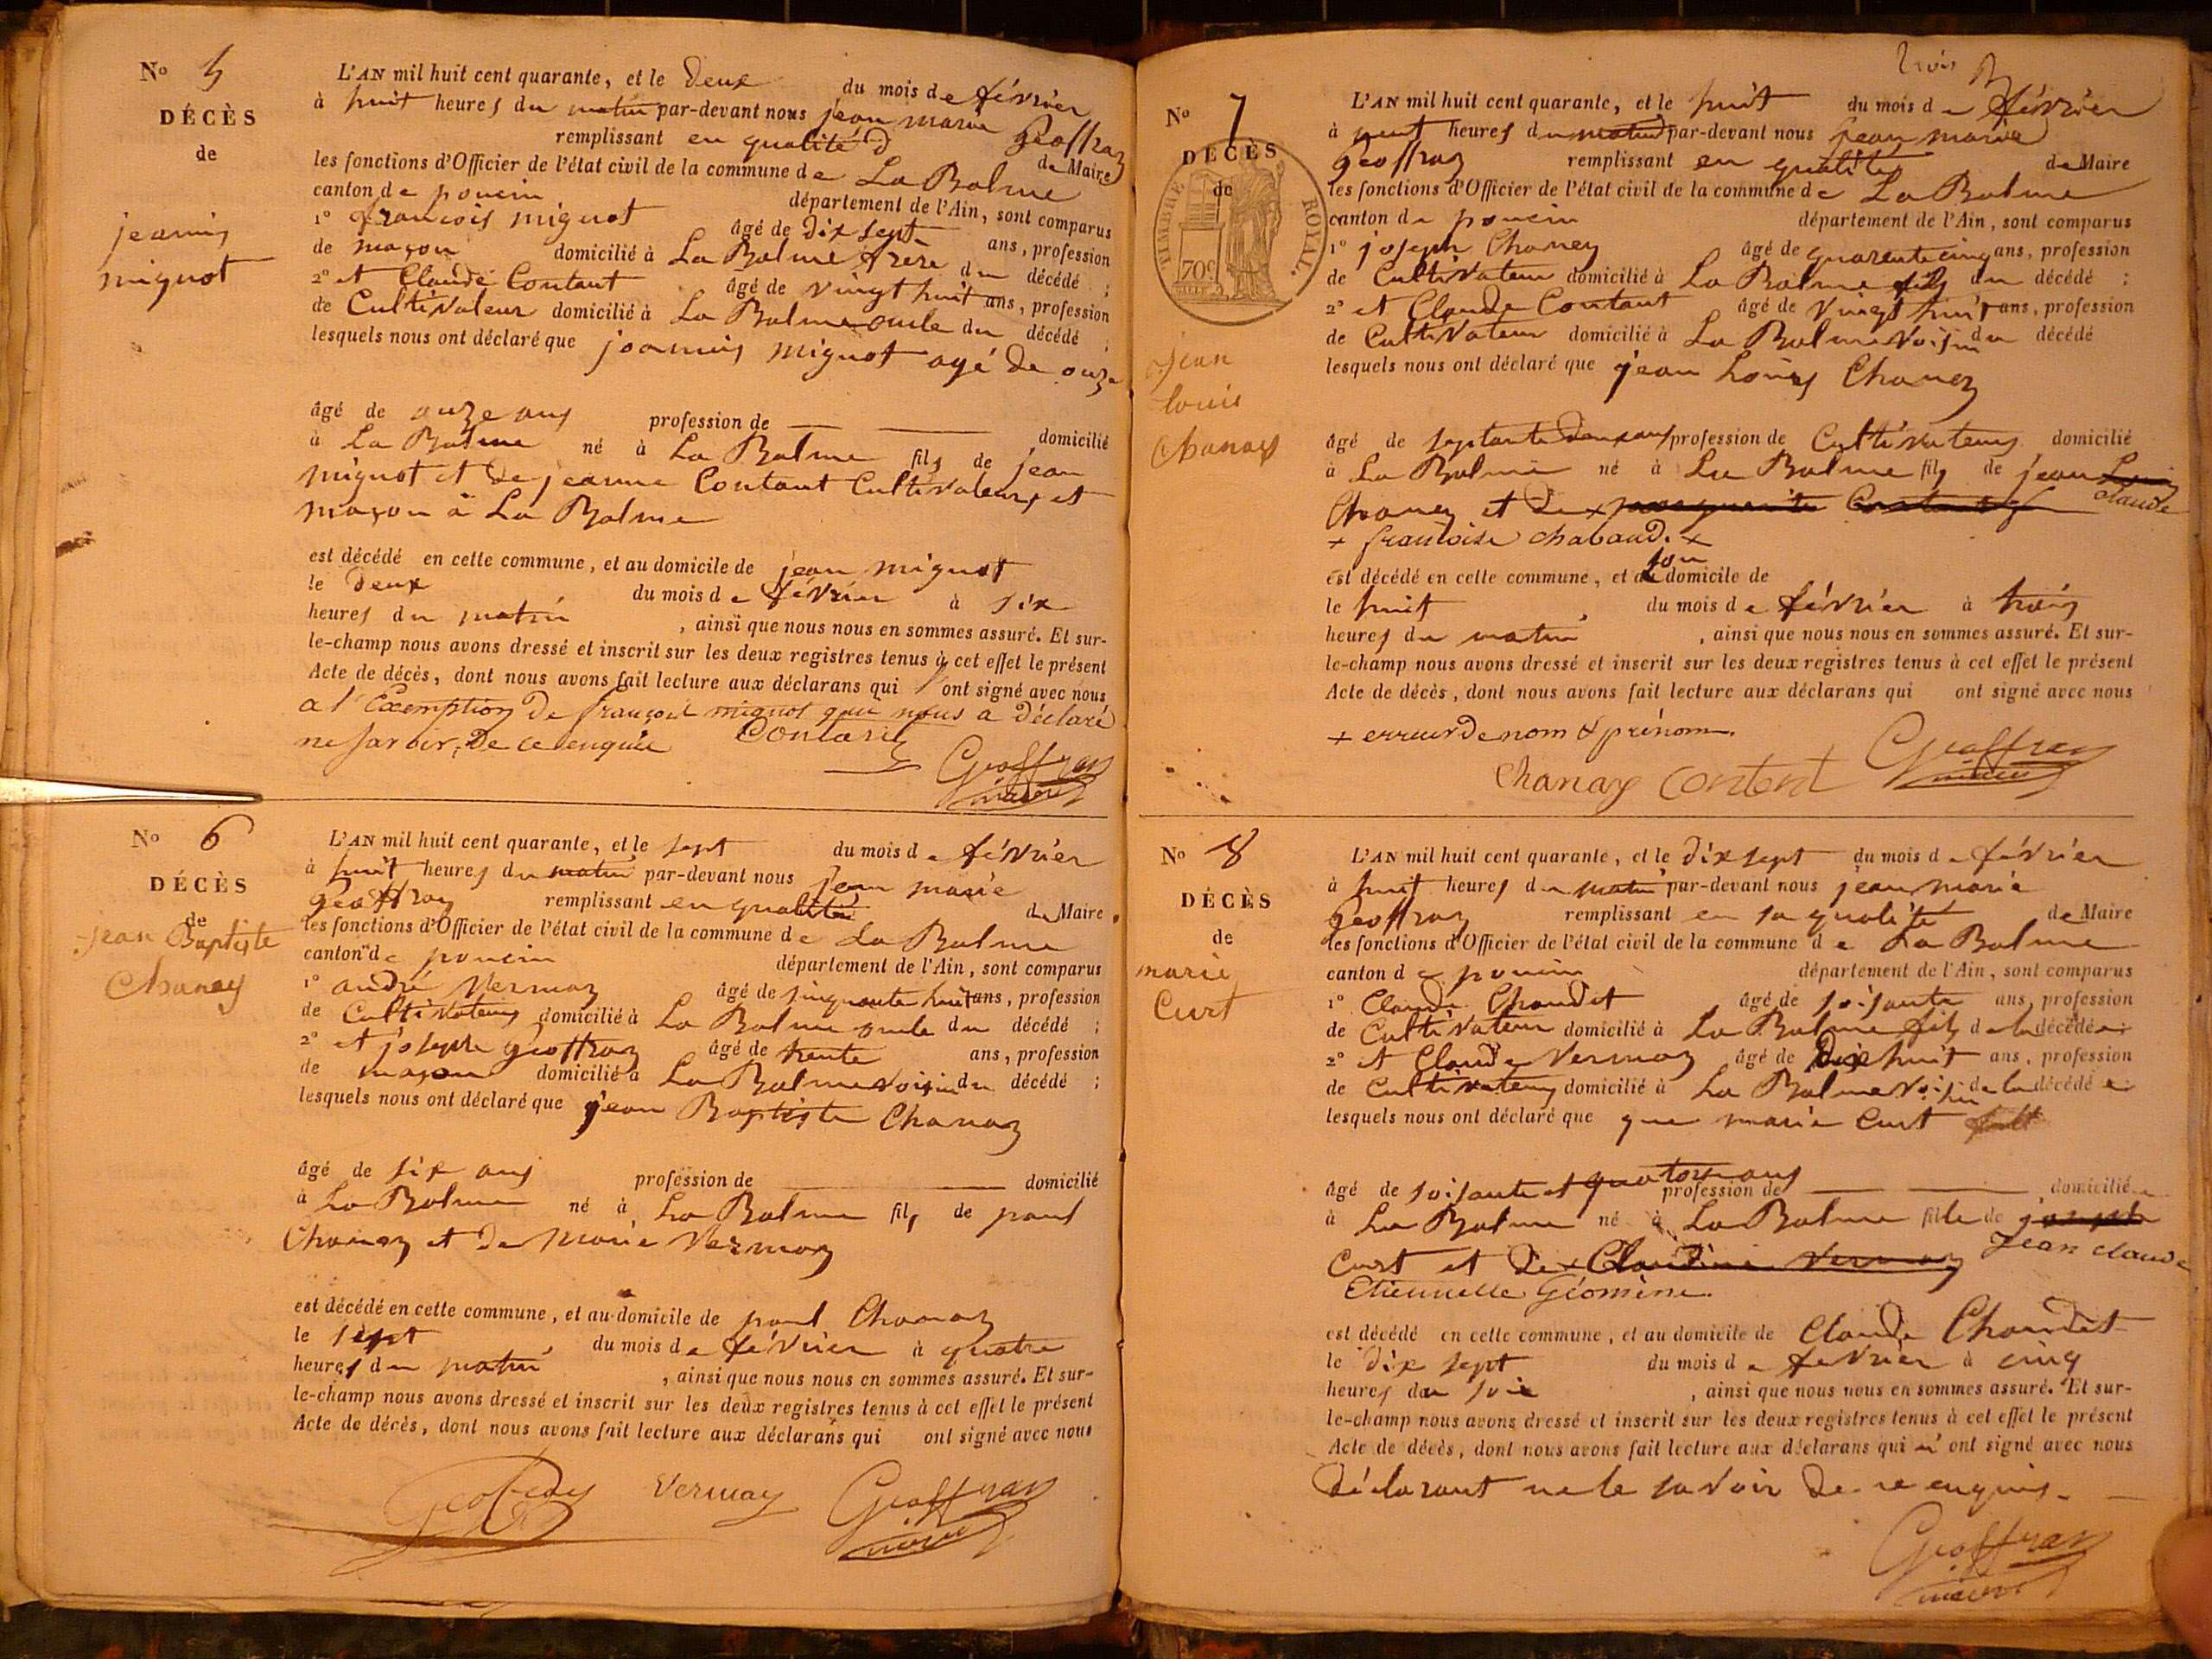 No 5
DÉCÈS
de
jeanny
mignot
L'AN mil huit cent quarante, et le Deux du mois de février
à huit heures du matin par-devant nous jean marie Geoffray
remplissant en qualité d de Maire
les fonctions d'Officier de l'état civil de la commune de La Balme
canton de poncin département de l'Ain, sont comparus
1° francois mignot âgé de dix sept ans, profession
de maçon domicilié à La Balme frere du décédé ;
2° et Claude Contant âgé de vingt huit ans, profession
de Cultivateur domicilié à La Balme oncle du décédé ;
lesquels nous ont déclaré que joannis mignot agé de onze
âgé de onze ans profession de domicilié
à La Balme né à La Balme fils de jean
mignot et de jeanne Contant Cultivateurs et
maçon à La Balme
est décédé en cette commune, et au domicile de jean mignot
le Deux du mois de février à six
heures du matin , ainsi que nous nous en sommes assuré. Et sur-
le-champ nous avons dressé et inscrit sur les deux registres tenus à cet effet le présent
Acte de décès, dont nous avons fait lecture aux déclarans qui ont signé avec nous
a l'Exemption de françois mignot qui nous a déclaré
ne savoir, de ce enquis
Geoffray
maire
No 6
DÉCÈS
de
jean Baptiste
Chanay
L'AN mil huit cent quarante, et le sept du mois de février
à huit heures du matin par-devant nous jean marie
Geoffray remplissant en qualité de Maire
les fonctions d'Officier de l'état civil de la commune de La Balme
canton de poncin département de l'Ain, sont comparus
1° andré Vermay âgé de sinquante huit ans, profession
de Cultivateur domicilié à La Balme oncle du décédé ;
2° et joseph geoffray âgé de trente ans, profession
de maçon domicilié à La Balme voisin du décédé ;
lesquels nous ont déclaré que jean Baptiste Chanay
âgé de six ans profession de domicilié
à La Balme né à La Balme fils de paul
Chanay et de Marie Vermay
est décédé en cette commune, et au domicile de paul Chanay
le sept du mois de février à quatre
heures du matin , ainsi que nous nous en sommes assuré. Et sur-
le-champ nous avons dressé et inscrit sur les deux registres tenus à cet effet le présent
Acte de décès, dont nous avons fait lecture aux déclarans qui ont signé avec nous
Vermay Geoffray
maire
trois
No 7
DÉCÈS
de
TIMBRE ROYAL.
70c
jean
louis
Chanay
L'AN mil huit cent quarante, et le huit du mois de février
à neuf heures du matin par-devant nous jean marie
Geoffray remplissant en qualité de Maire
les fonctions d'Officier de l'état civil de la commune de La Balme
canton de poncin département de l'Ain, sont comparus
1° joseph Chaney âgé de quarente cinq ans, profession
de Cultivateur domicilié à La Balme fils du décédé ;
2° et Claude Contant âgé de vingt huit ans, profession
de Cultivateur domicilié à La Balme voisin du décédé
lesquels nous ont déclaré que jean Louis Chaney
âgé de septante deux ans profession de Cultivateur domicilié
à La Balme né à La Balme fils de jean Louis
claude
Chaney et de + marguerite Contant
+ françoise chabaud. +
est décédé en cette commune, et au son domicile de
le huit du mois de février à trois
heures du matin , ainsi que nous nous en sommes assuré. Et sur-
le-champ nous avons dressé et inscrit sur les deux registres tenus à cet effet le présent
Acte de décès, dont nous avons fait lecture aux déclarans qui ont signé avec nous
+ erreur de nom & prénom.
Chanay Contant Geoffray
maire
No 8
DÉCÈS
de
marie
Curt
L'AN mil huit cent quarante, et le dix sept du mois de février
à huit heures du matin par-devant nous jean marie
Geoffray remplissant en sa qualité de Maire
les fonctions d'Officier de l'état civil de la commune de La Balme
canton de poncin département de l'Ain, sont comparus
1° Claude Chaudet âgé de soisante ans, profession
de Cultivateur domicilié à La Balme fils de la décédée
2° et Claude Vermay âgé de Dix huit ans, profession
de Cultivateur domicilié à La Balme voisin de la décédée
lesquels nous ont déclaré que que marie Curt
âgé de soisante et quatorze ans profession de domiciliée
à La Balme né à La Balme fille de joseph
Jean claude
Curt et de + Claudine Vermay
Etiennette Géomine.
est décédé en cette commune, et au domicile de Claude Chaudet
le dix sept du mois de fevrier à cinq
heures du soir , ainsi que nous nous en sommes assuré. Et sur-
le-champ nous avons dressé et inscrit sur les deux registres tenus à cet effet le présent
Acte de décès, dont nous avons fait lecture aux déclarans qui n' ont signé avec nous
déclarant ne le savoir de ce enquis.
Geoffray
maire